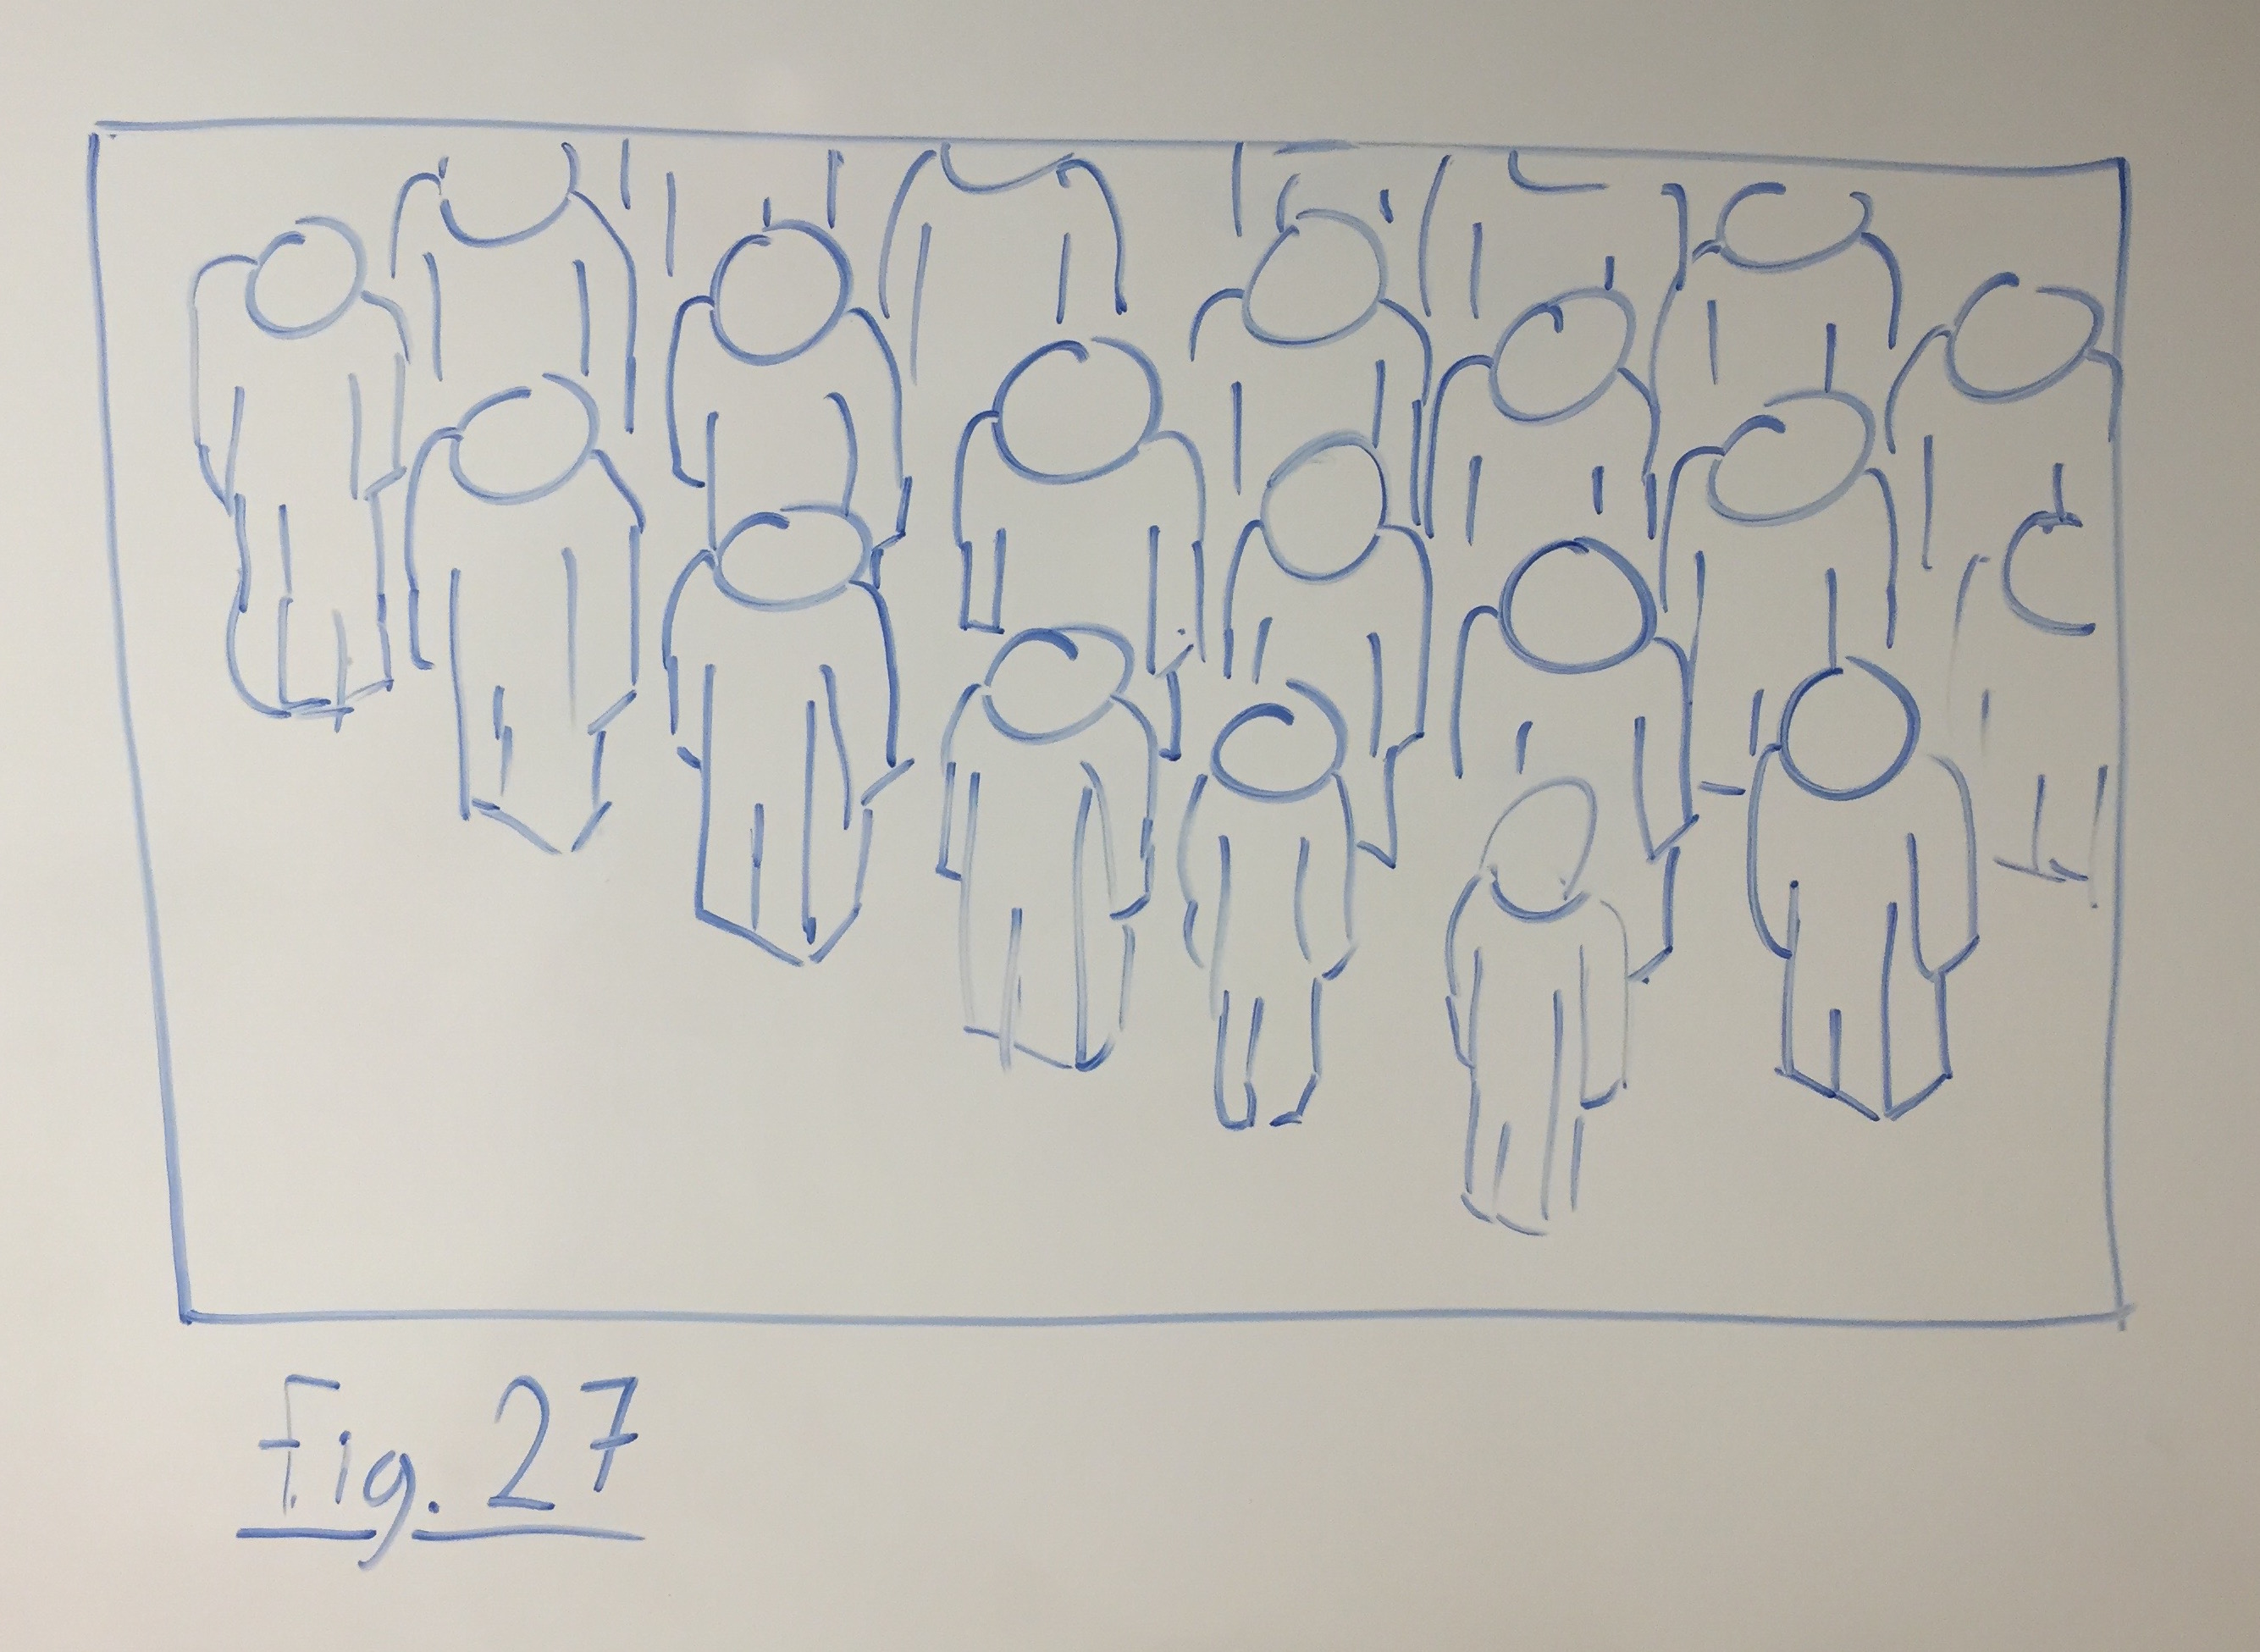 Fig. 27